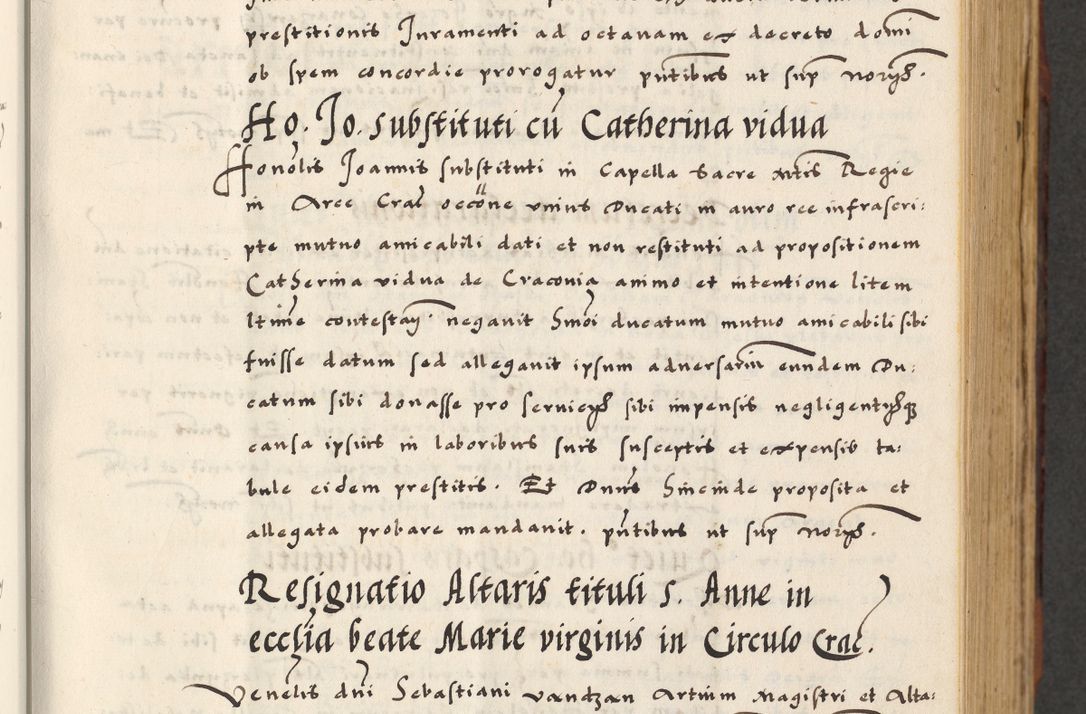 prestitionis Iuramenti ad octavam ex decreto domi
ob spem concordie prorogatur pntibus ut sup noryß.
Ho. Io. substituti cu Catherina vidua
Honolis Ioannis substituti in Capella Sacre Mtis Regie
in Arce Crac occone unius Ducati in auro ree infrascri:
pte mutuo amicabili dati et non restituti ad propositionem
Catherina vidua de Cracovia animo et intentione litem
ltime contestan negavit hmoi ducatum mutuo amicabili sibi
fuisse datum sed allegavit ipsum adversarium eundem Du:
catum sibi donasse pro servicyß sibi impensis negligentyßq
causa ipsius in laboribus suis susceptis et expensis ta:
bule eidem prestitis. Et Dnus hincinde proposita et
allegata probare mandavit. pntibus ut sup noryß.
Resignatio Altaris tituli s. Anne in
ecclia beate Marie virginis in Circulo Crac.
Venelis dni Sebastiani vandzan Artium Magistri et Alta: